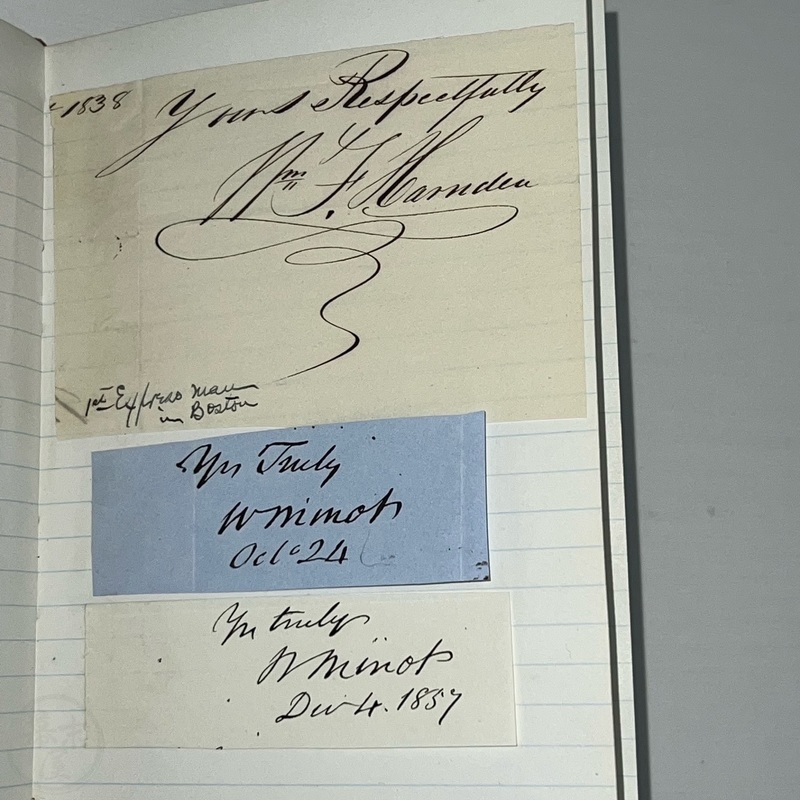 1838
Yours Respectfully
Wm F. Harnden
1st Express man
in Boston
Yrs Truly
W Minot
Oct 24
Yrs truly
W Minot
Dec 4. 1857